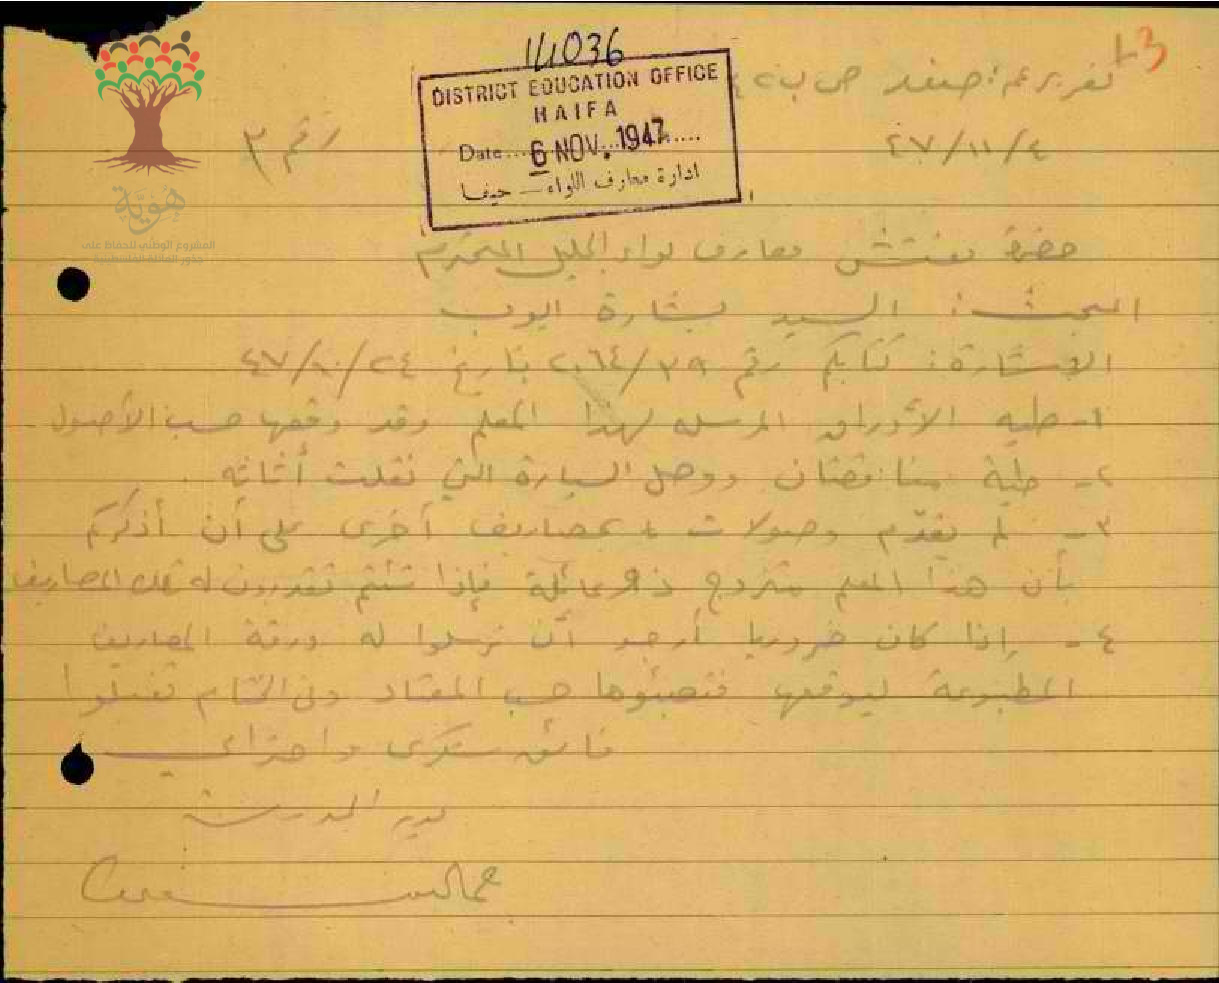 43
14036
DISTRICT EDUCATION OFFICE
HAIFA
Date....6 NOV. 1947....
ادارة معارف اللواء — حيفا
صفد ص ب
رقم ٣
٤/١١/٤٧
هُوِيَّة
المشروع الوطني للحفاظ على
جذور العائلة الفلسطينية
حضرة مفتش معارف لواء الجليل المحترم
البحث: السيد بشارة ايوب
الاشارة: كتابكم رقم ٢٠٦٤/٣٩ بتاريخ ٢٤/١٠/٤٧
١- طيه الأوراق المرسله لهذا المعلم وقد وقعها حسب الأصول
٢- طيّه مناقصتان ووصل السيارة التي نقلت أثاثه.
٣- لم يقدّم وصولات بمصاريف أخرى على أن أذكركم
بأن هذا المعلم متزوج ذو عائلة فإذا شئتم تقدرون له تلك المصاريف
٤- إذا كان ضروريا أرجو أن ترسلوا له ورقة المصاريف
المطبوعة ليوقعها حسب المعتاد وفي الختام تفضلوا
فائق شكري واحترامي
مدير المدرسة